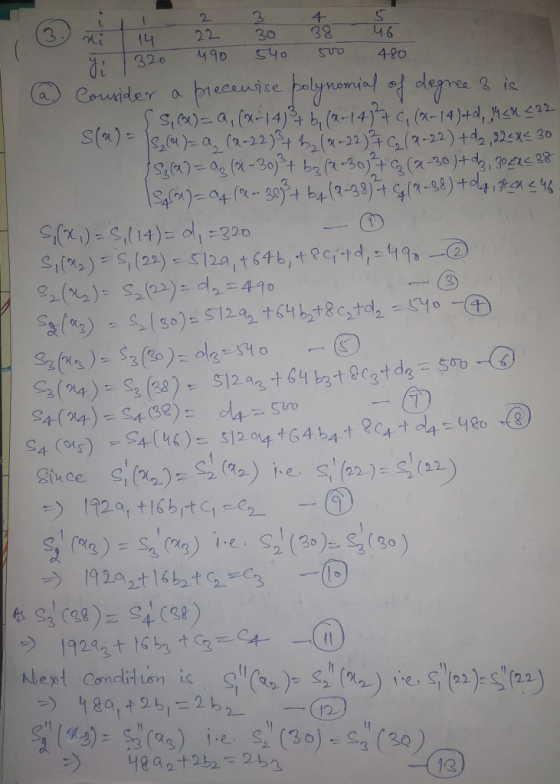 (3.) i 1 2 3 4 5
xi 14 22 30 38 46
yi 320 490 540 500 480
(a) Consider a piecewise polynomial of degree 3 is
S1(x) = a1(x-14)³ + b1(x-14)² + c1(x-14) + d1, 14≤x≤22
S(x) = { S2(x) = a2(x-22)³ + b2(x-22)² + c2(x-22) + d2, 22≤x≤30
S3(x) = a3(x-30)³ + b3(x-30)² + c3(x-30) + d3, 30≤x≤38
S4(x) = a4(x-38)³ + b4(x-38)² + c4(x-38) + d4, 38≤x≤46
S1(x1) = S1(14) = d1 = 320 — (1)
S1(x2) = S1(22) = 512a1 + 64b1 + 8c1 + d1 = 490 — (2)
S2(x2) = S2(22) = d2 = 490 — (3)
S2(x3) = S2(30) = 512a2 + 64b2 + 8c2 + d2 = 540 — (4)
S3(x3) = S3(30) = d3 = 540 — (5)
S3(x4) = S3(38) = 512a3 + 64b3 + 8c3 + d3 = 500 — (6)
S4(x4) = S4(38) = d4 = 500 — (7)
S4(x5) = S4(46) = 512a4 + 64b4 + 8c4 + d4 = 480 — (8)
Since S1'(x2) = S2'(x2) i.e. S1'(22) = S2'(22)
⇒ 192a1 + 16b1 + c1 = c2 — (9)
S2'(x3) = S3'(x3) i.e. S2'(30) = S3'(30)
⇒ 192a2 + 16b2 + c2 = c3 — (10)
S3'(38) = S4'(38)
⇒ 192a3 + 16b3 + c3 = c4 — (11)
Next condition is S1''(x2) = S2''(x2) i.e. S1''(22) = S2''(22)
⇒ 48a1 + 2b1 = 2b2 — (12)
S2''(x3) = S3''(x3) i.e. S2''(30) = S3''(30)
⇒ 48a2 + 2b2 = 2b3 — (13)